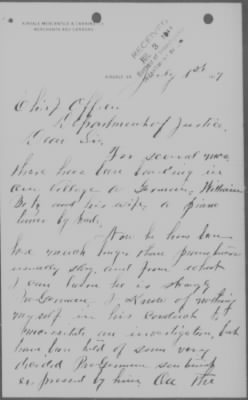 KINSALE MERCANTILE & CANNING CO.
MERCHANTS AND CANNERS
RECEIVED
KINSALE, VA. July 1st
Chief Officer
Department of Justice,
Dear Sir:
For several mos.
there have been boarding in
our village a German, William
and his wife, a piano
tuner by trade.
Now he has been
here much longer than
usually stay, and from what
I can learn he is strongly
Pro German. I know of nothing
myself in his conduct to
necessitate an investigation, but
have been told of some very
decided Pro German sentiments
expressed by him. All the